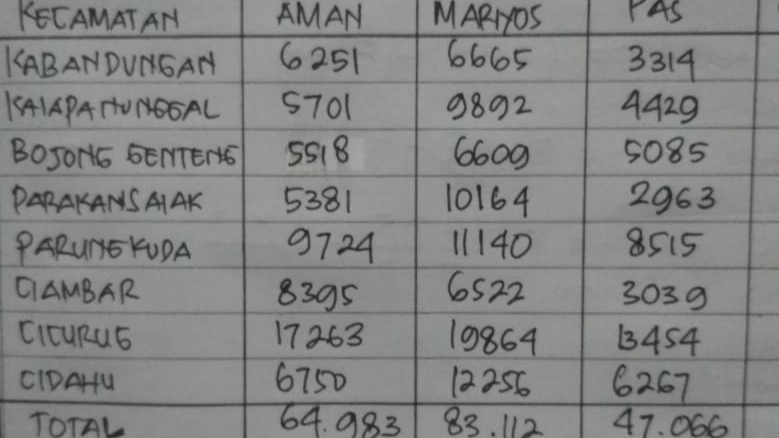 KECAMATAN AMAN MARIYOS PAS
KABANDUNGAN 6251 6665 3314
KALAPANUNGGAL 5701 9892 4429
BOJONG GENTENG 5518 6609 5085
PARAKANSALAK 5381 10164 2963
PARUNGKUDA 9724 11140 8515
CIAMBAR 8395 6522 3039
CICURUG 17263 19864 13454
CIDAHU 6750 12256 6267
TOTAL 64.983 83.112 47.066